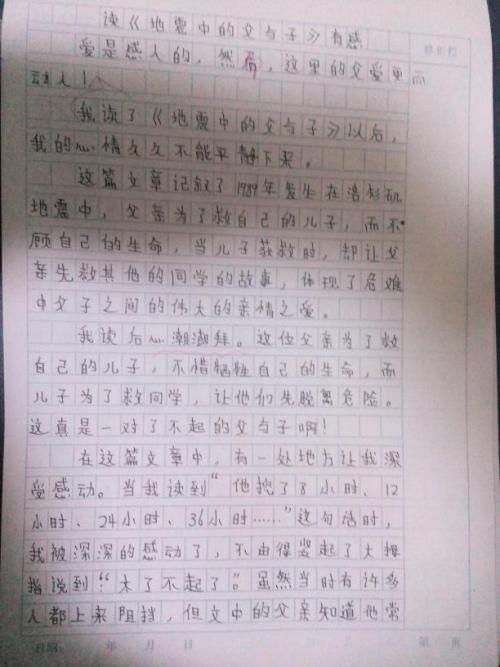 读《地震中的父与子》有感
爱是感人的，然而，这里的父爱更而
动人！
我读了《地震中的父与子》以后，
我的心情久久不能平静下来。
这篇文章记叙了1989年发生在洛杉矶
地震中，父亲为了救自己的儿子，而不
顾自己的生命，当儿子获救时，却让父
亲先救其他的同学的故事，体现了危难
中父子之间的伟大的亲情之爱。
我读后心潮澎拜。这位父亲为了救
自己的儿子，不惜牺牲自己的生命，而
儿子为了救同学，让他们先脱离危险。
这真是一对了不起的父与子啊！
在这篇文章中，有一处地方让我深
受感动。当我读到“他挖了8小时、12
小时、24小时、36小时……”这句话时，
我被深深的感动了，不由得竖起了大拇
指说到：“太了不起了”。虽然当时有许多
人都上来阻挡，但文中的父亲知道他常
日期： 年 月 日 第 页